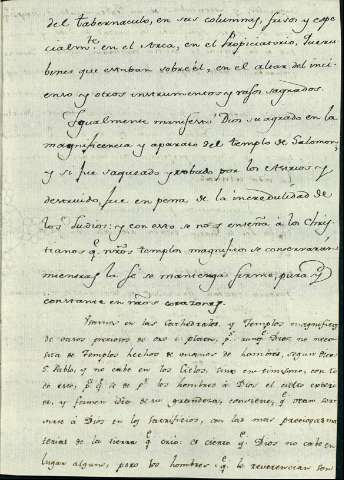 del tabernaculo, en sus columnas, frisos y espe
cialm.te en el Arca, en el Propiciatorio, Queru
bines que estaban sobre él, en el altar del inci
enso y otros instrumentos y vasos sagrados.
Igualmente manifestó Dios su agrado en la
magnificencia y aparato del templo de Salomon,
y si fue saqueado y robado por los Asirios y
destruido, fue en pena de la incredulidad de
los Judios: y con esto se nos enseña à los Chris
tianos q.e nrõs templos magnificos se conservarán
mientras la fé se mantenga firme, pura y
constante en nrõs corazones.
en las Cathedrales, y Templos magnificos
de vasos preciosos de oro i plata, p.q.e aunq.e Dios no nece
sita de Templos hechos de manos de hombres, segun dice
S. Pablo, y no cabe en los Cielos, con to
do eso, p.a q.e los hombres à Dios el culto exteri
or, y formen idea de su grandeza, conviene, q.e
à Dios en los sacrificios, con las mas preciosas ma
terias de la tierra q.e crió: es cierto q.e Dios no cabe en
lugar alguno, pero los hombres q.e le reverencian son